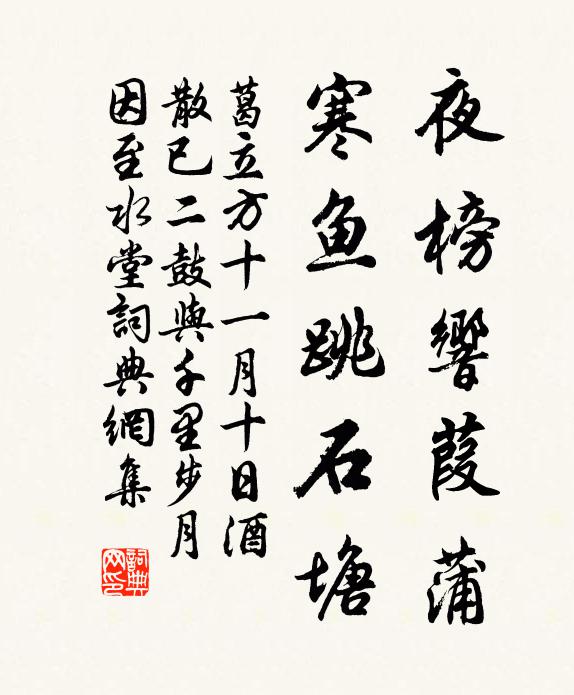 夜榜響葭蒲
寒鱼跳石塘
葛立方十一月十日酒
散已二鼓與千里步月
因至水堂詞典網集
詞典网印